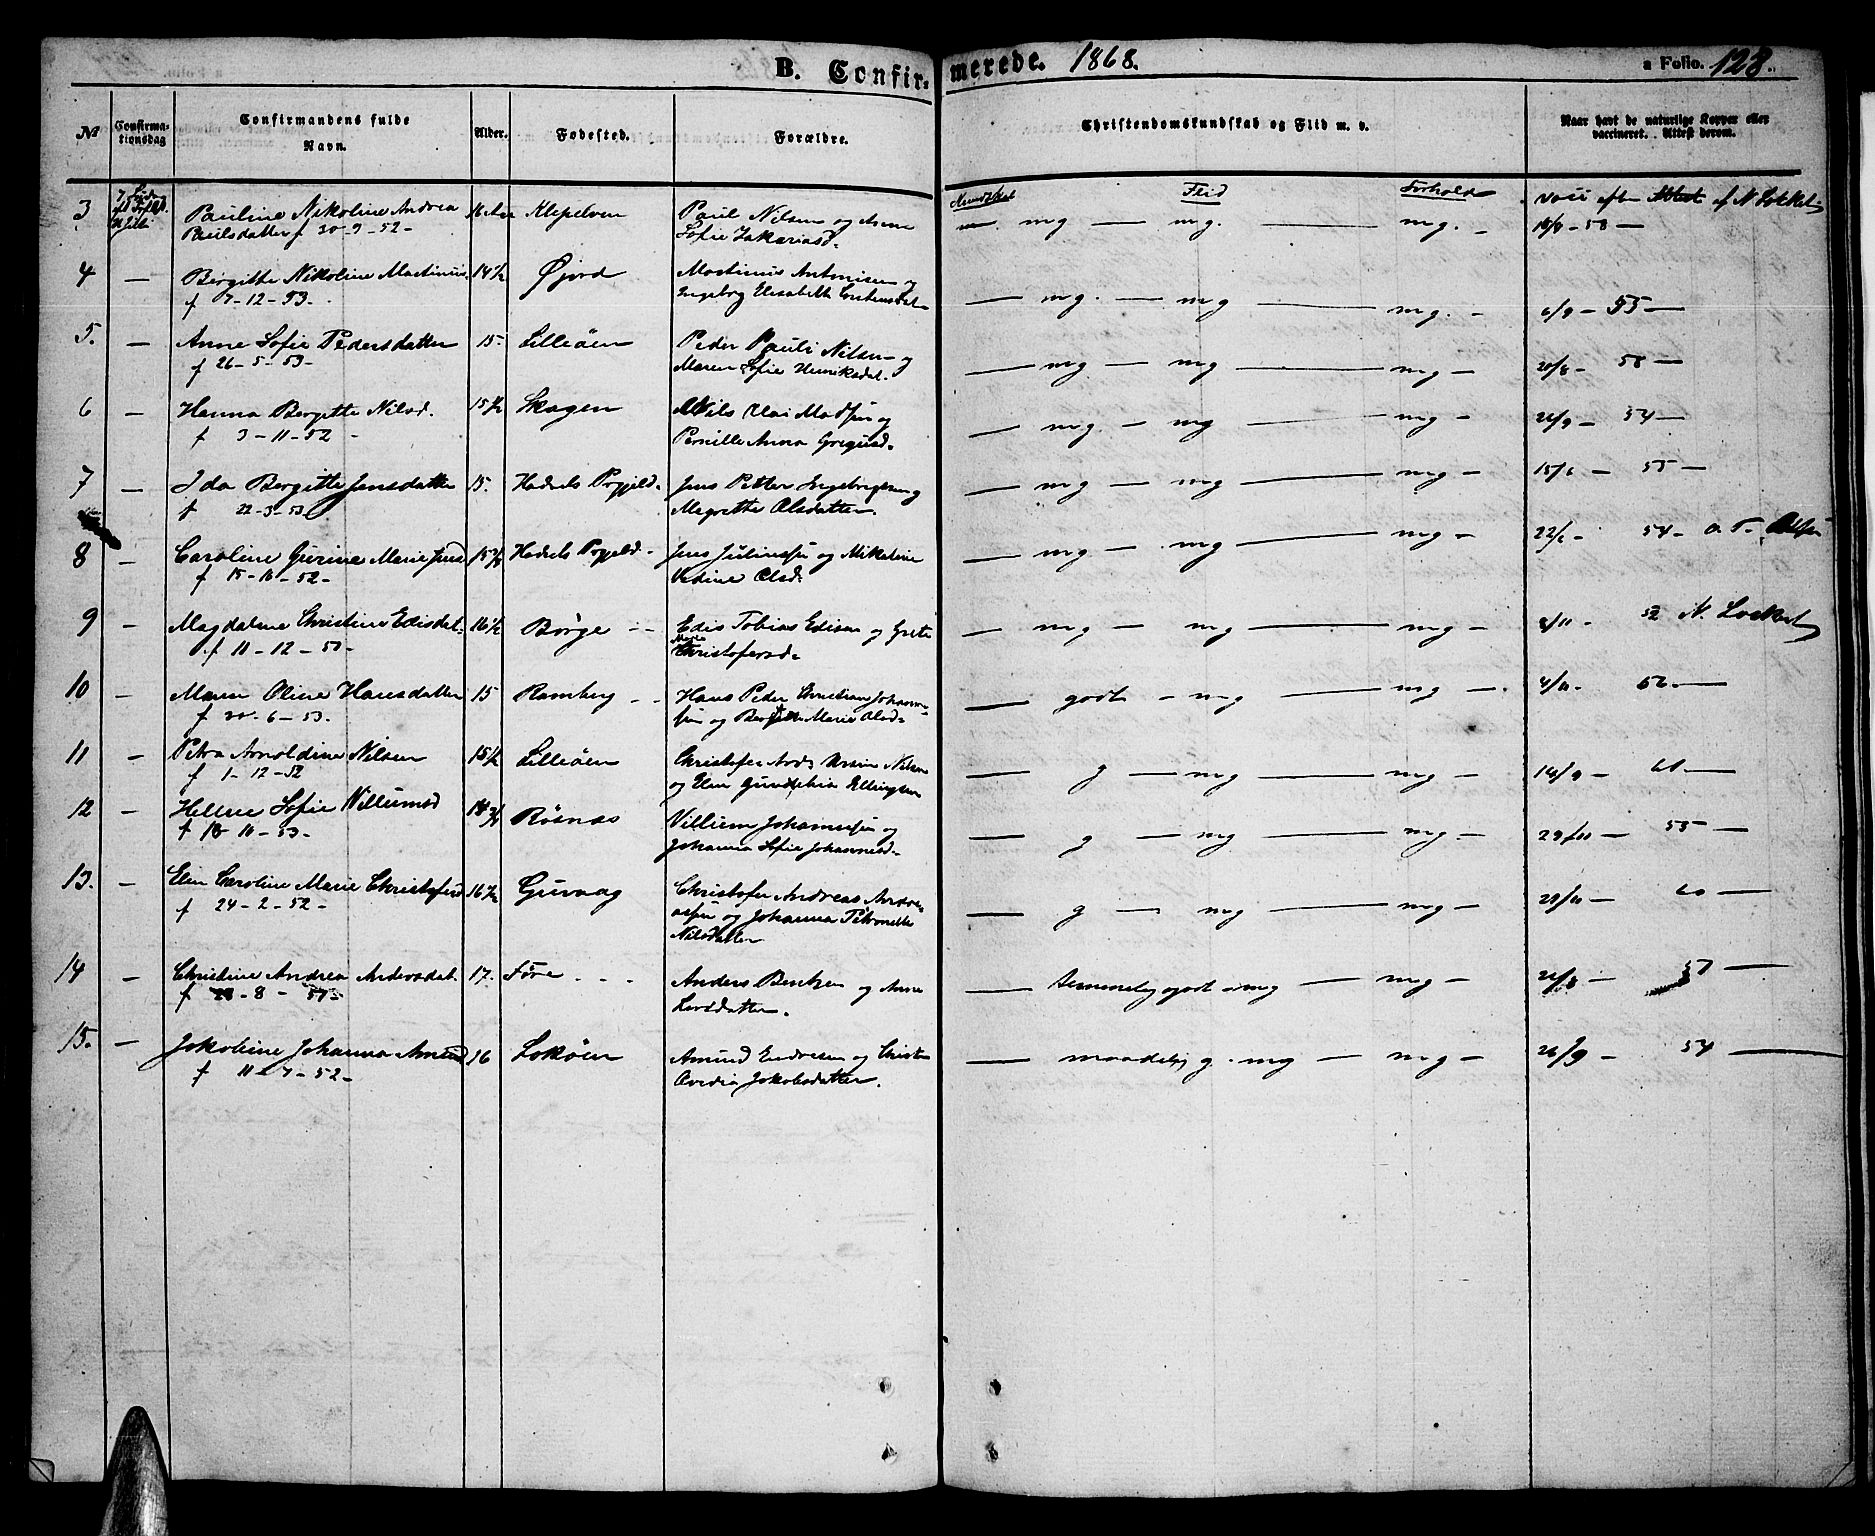 B. Confirmerede. 1868.
a Folio. 128.
№
Confirmationsdag
Confirmandens fulde Navn.
Alder.
Fødested.
Forældre.
Christendomskundskab og Flid m. v.
Naar havt de naturlige Kopper eller vaccineret. Attest derom.
Kundskab Flid Forhold
3 Pauline Nikoline Andrea 16 Aar Klepelven Paul Nilsen og Anne — mg — mg. — mg. — vacc. efter Attest af N. Lockert
Paulsdatter f 30-9-52- Sofie Zakariasd. 18/8 - 58 —
4 — Bergitte Nikoline Martinus. 14 1/2 Øjord Martinus Antonisen og
f 7-12-53- Ingeborg Elisabeth — mg. — mg — mg. — 6/9 - 55 —
5. — Anne Sofie Pedersdatter 15- Lilleöen Peder Pauli Nilsen og
f 26-5-53- Maren Sofie Henriksdat. — mg — mg — mg — 20/8 - 58 —
6 — Hanna Bergitte Nilsd. 15 1/2 Skagen Nils Olai Madsen og
f 3-11-52 - Pernille Anna — mg. — mg — mg — 26/9 - 54 —
7 — Ida Bergitte Jensdatter 15. Hadsels Prgjeld. Jens Petter Ingebrigtsen og — mg — mg — mg — 15/6 - 55 —
f 22-3-53 Magrette Olsdatter.
8 — Caroline Gurine Marie Jensd 15 3/4 Hadsels Prgjeld - Jens Juliussen og Mikeline — mg — mg — mg — 22/6 - 54 -
f 15-10-52- Vedine Olsd.
9 — Magdalene Christine Edisdat. 16 1/2 Börge — Edis Tobias Edisen og Grete — mg — mg — mg — 8/11 52 N. Lockert
f 11-12-51- Marie Christofersd.
10 — Maren Oline Hansdatter 15 Ramberg — Hans Peder Christian Johannes- — godt — mg — mg — 4/11 - 56. —
f 30-6-53. sen og Bergitte Marie Olsd.
11 — Petra Arnoldine Nilsen 15 1/2 Lilleöen Christofer Nilsen
f 1-12-52 og Elen Ellingsen — g — mg — mg — 14/9 - 61 —
12 — Hellene Sofie Villumsd 14 3/4 Rösnas Villum Johannesen og
f 18 10-53- Johanna Sofie Johannesd. — g — mg — mg — 29/11 - 55 —
13. — Elen Caroline Marie Christofersd 16 1/2 Guvaag Christofer Andreas Andre-
f 24-2-52- assen og Johanna Petronelle — g — mg — mg — 29/11 - 60 —
Nilsdatter
14 — Christine Andrea Andersdat. 17. Före - - Anders Bentzen og Anne — temmelig godt - mg — mg — 26/8 - 57 —
f 28-8-51- Larsdatter.
15. — Jakobine Johanna Amund 16 Loköen Amund Endresen og — maadelig g. mg — mg — 26/9 - 54 —
f 11-7-52- Jakobsdatter.